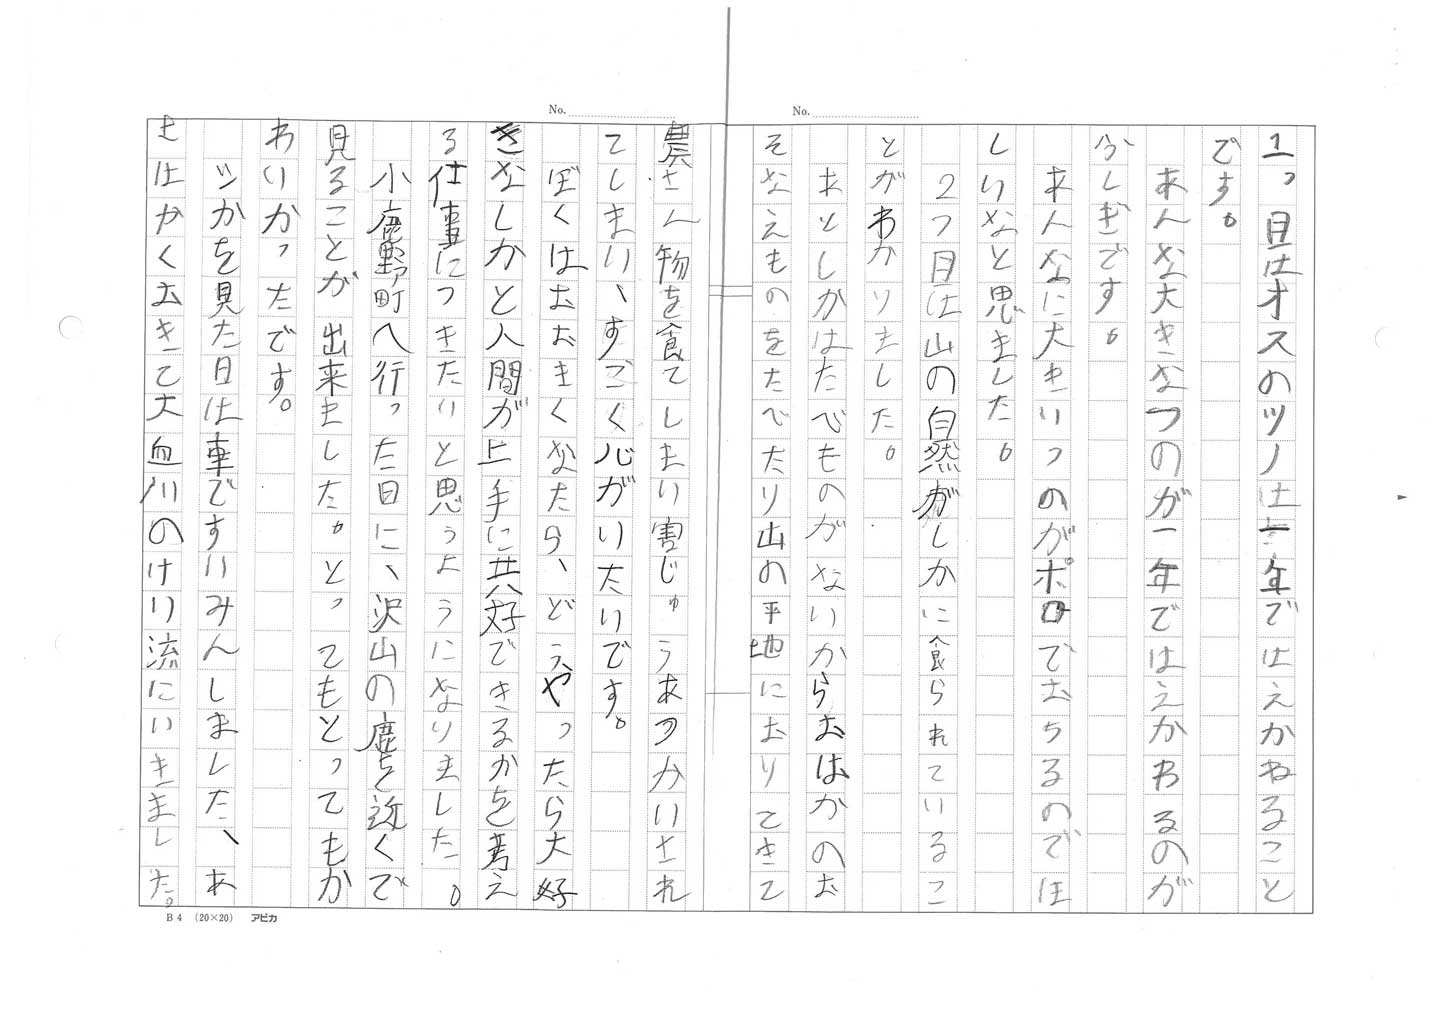 No.
No.
1つ目はオスのツノは一年ではえかわること
です。
あんな大きなつのが一年ではえかわるのが
ふしぎです。
あんなに大きいつのがポロでおちるのでほ
しいなと思ました。
2つ目は山の自然がしかに食られているこ
とがわかりました。
あとしかはたべものがないからおはかのお
そなえものをたべたり山の平地におりてきて
農さん物を食てしまい害じゅうあつかいされ
てしまい、すごく心がいたいです。
ぼくはおおきくなたら、どうやったら大好
きなしかと人間が上手に共好できるかを考え
る仕事につきたいと思うようになりました。
小鹿野町へ行った日に、沢山の鹿を近くで
見ることが出来ました。とってもとってもか
わいかったです。
ツかを見た日は車ですいみんしました、あ
さはやくおきて大血川のけい流にいきました。
B4 (20×20) アピカ